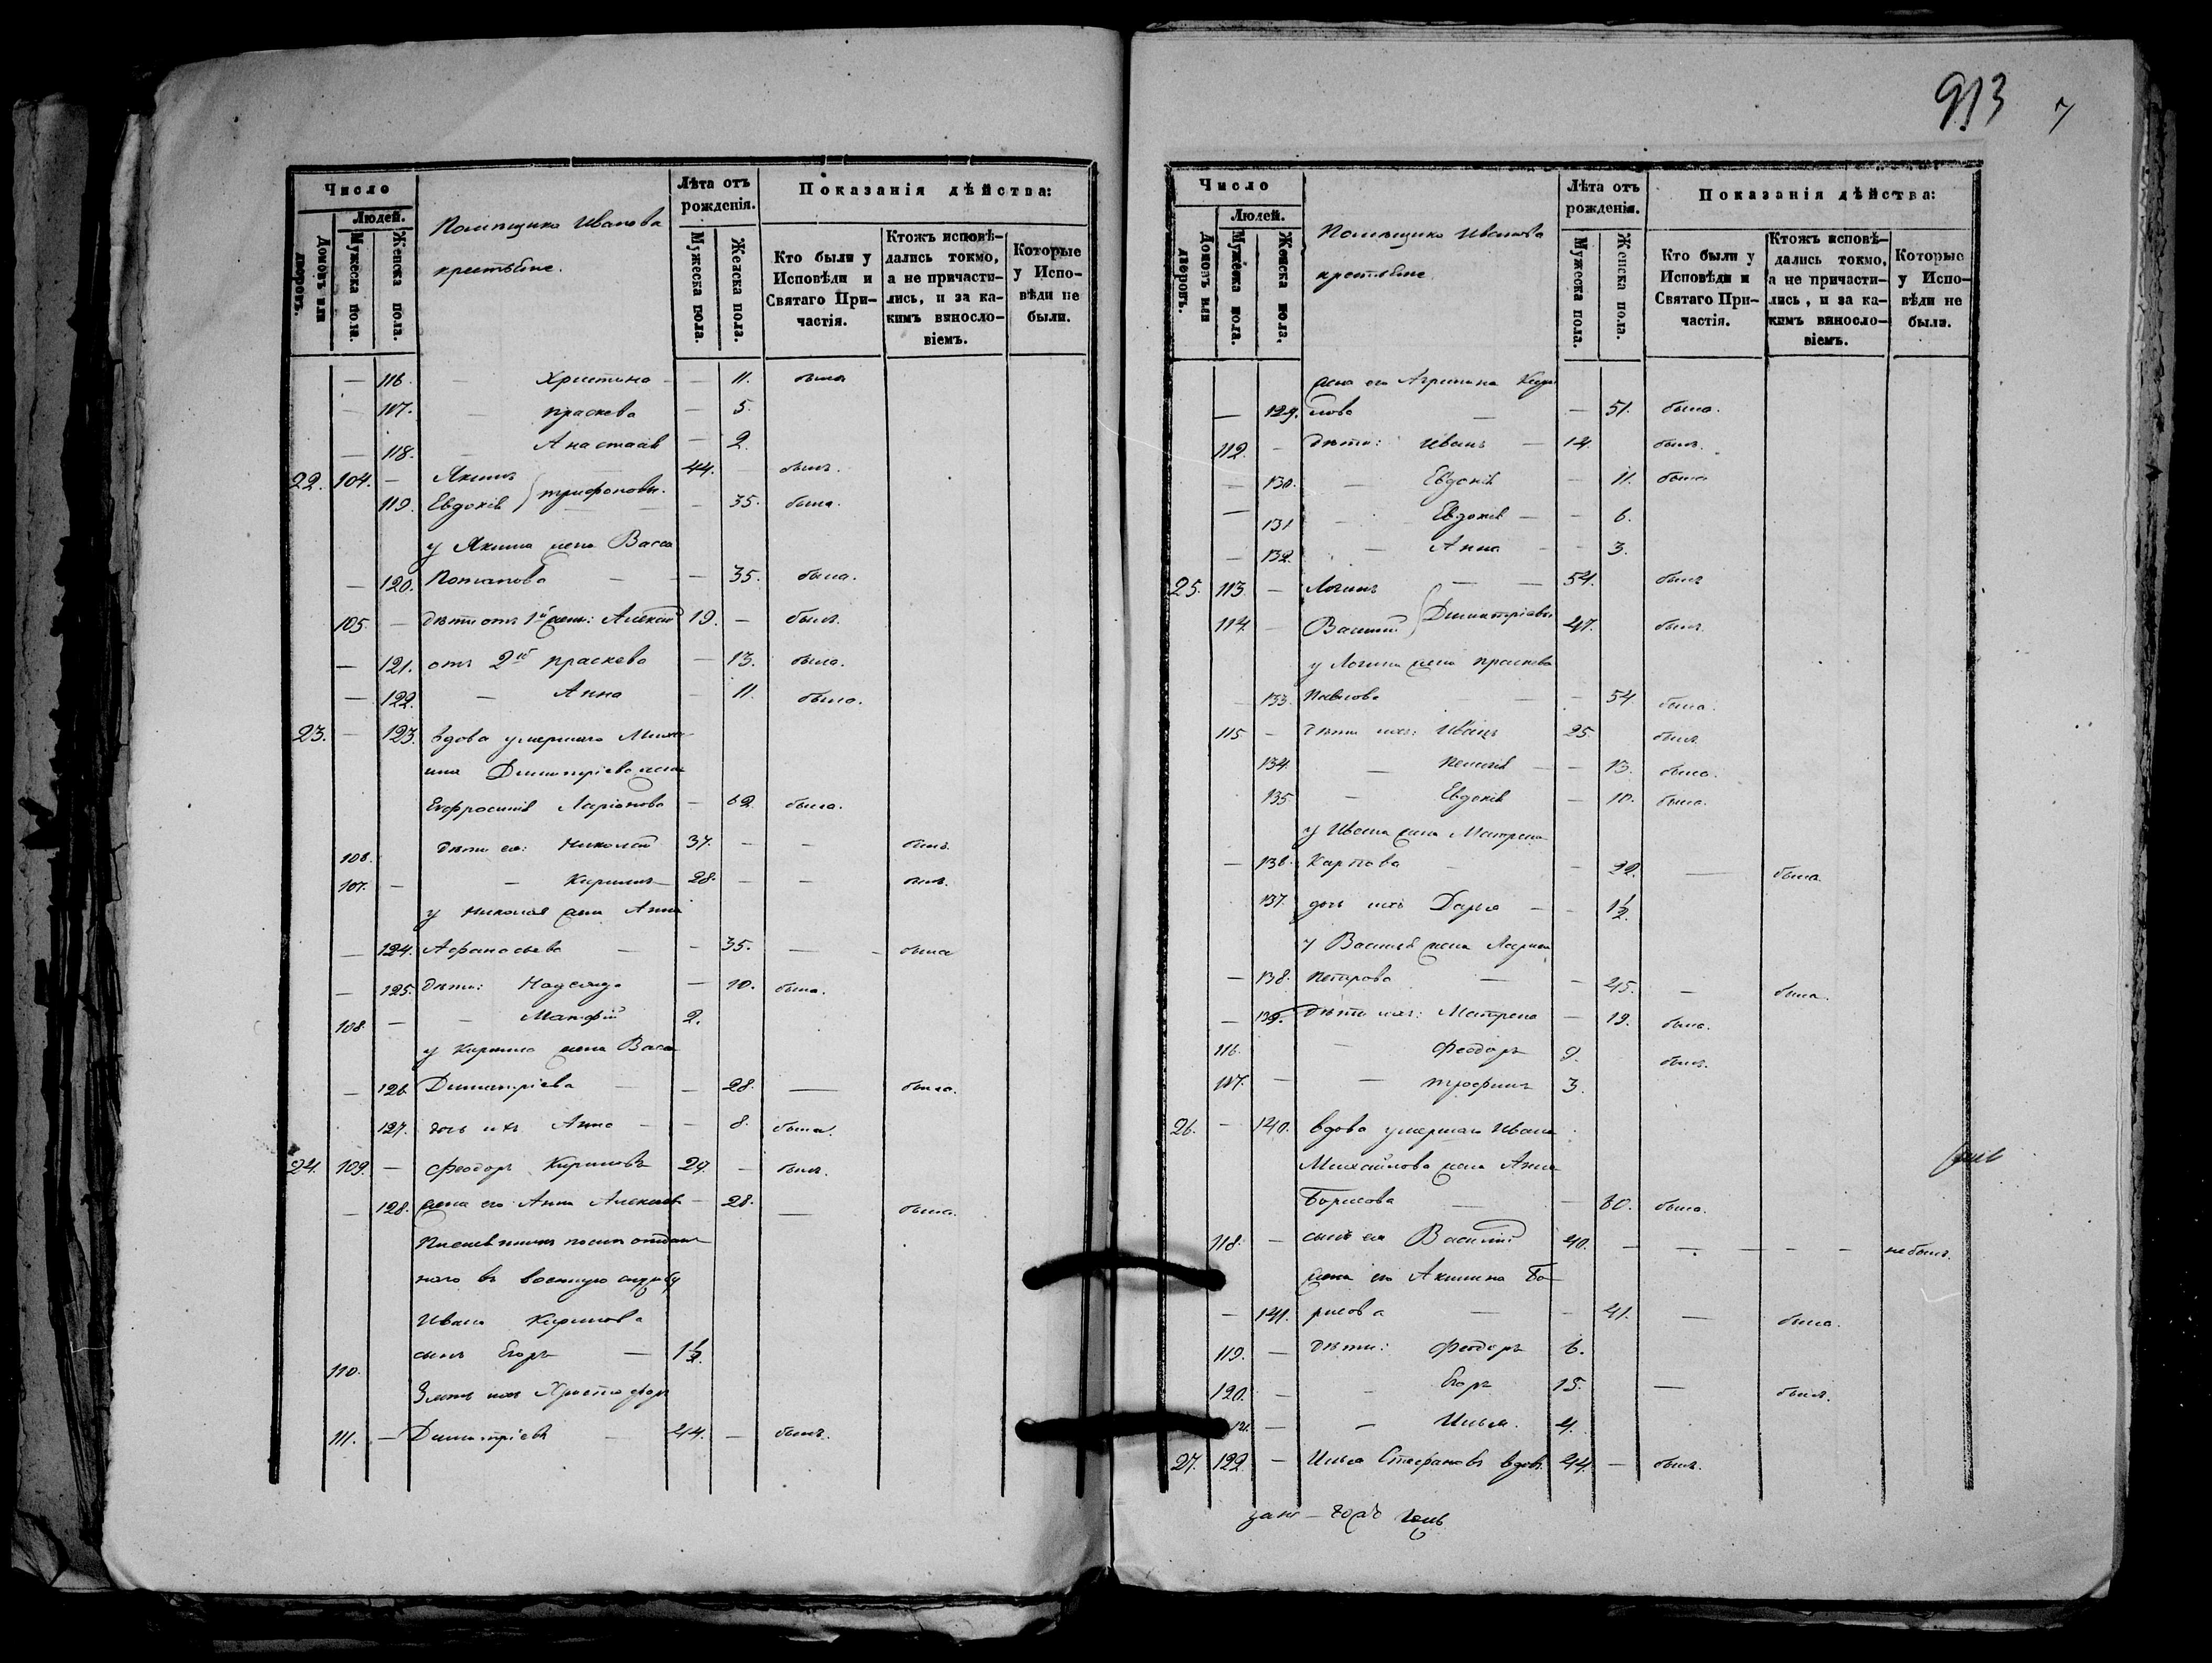 Число
Людей.
Домовъ или дворовъ.
Мужеска пола.
Женска пола.
Помѣщика Иванова
крестьяне.
Лѣта отъ рожденія.
Мужеска пола.
Женска пола.
Показанія дѣйства:
Кто были у Исповѣди и Святаго Причастія.
Ктожъ исповѣдались токмо, а не причастились, и за какимъ винословіемъ.
Которые у Исповѣди не были.
— 116. — Христина — — 11. была
— 117. — Праскева — 5.
— 118. — Анастасія — 2.
22. 104. — Якимъ 44. былъ.
119. Евдокія } Трифоновы. — 35. была.
у Якима жена Васса
— 120. Потапова — — 35. была.
105. — дѣти отъ 1й жены: Алексѣй 19. — былъ.
— 121. отъ 2й Праскева — 13. была.
— 122. — Анна — 11. была.
23. — 123. вдова умершаго
Димитріева жена
Ефросинія Ларіонова — 62. была.
106. дѣти ея: Николай 37. — — былъ.
107. — — Кирилъ — 28. — — былъ.
у Николая жена Анна
— 124. Афанасьева — — 35. — была
— 125. дѣти: Надежда — 10. была.
108. — — Матфій 2.
у Кирила жена Васса
— 126. Димитріева — — 28. — была.
127. дочь ихъ Анна — — 8. была.
24. 109. — Феодоръ Кириловъ 29. — былъ.
— 128. жена его Анна Алексѣев — 28. — была.
Племянникъ ихъ отдан
наго въ военную службу
Ивана Кирилова
110. сынъ Егоръ — 1½.
Зять ихъ Христофоръ
111. — Димитріевъ — 44. — былъ.
913 7
Число
Людей.
Домовъ или дворовъ.
Мужеска пола.
Женска пола.
Помѣщика Иванова
крестьяне
Лѣта отъ рожденія.
Мужеска пола.
Женска пола.
Показанія дѣйства:
Кто были у Исповѣди и Святаго Причастія.
Ктожъ исповѣдались токмо, а не причастились, и за какимъ винословіемъ.
Которые у Исповѣди не были.
жена его Агрипина Кири
— 129. лова — — 51. была.
112. — дѣти: Иванъ — 14. былъ.
— 130. — Евдокія — 11. была
— 131 — Евдокія — — 6.
— 132. — Анна — — 3.
25. 113. — Логинъ — — 54. былъ
114. — Василій } Димитріевы 47. былъ.
у Логина жена Праскева
133. Павлова — — 54 была.
115. — дѣти ихъ: Иванъ 25. былъ.
134. — Пелагія — — 13. была.
135. — Евдокія — 10. была.
у Ивана жена Матрена
— 136. Карпова — — 22. — была.
137. дочь ихъ Дарья — — 1½.
у Василія жена
— 138. Петрова — — 45. — была.
— 139. дѣти ихъ: Матрена — 19. была.
116. — Феодоръ 9. былъ.
117. — — Трофимъ 3.
26. — 140. вдова умершаго Ивана
Михайлова жена Анна
Борисова — — 80. была.
118. — сынъ ея Василій 40. — — — — — не былъ.
жена его Акилина Бо
— 141. рисова — — 41. — была.
119. — дѣти: Феодоръ 6.
120. — — Егоръ 15. — былъ.
121. — — Илья. 4.
27. 122. — Илья Стефановъ вдов. 44. — былъ.